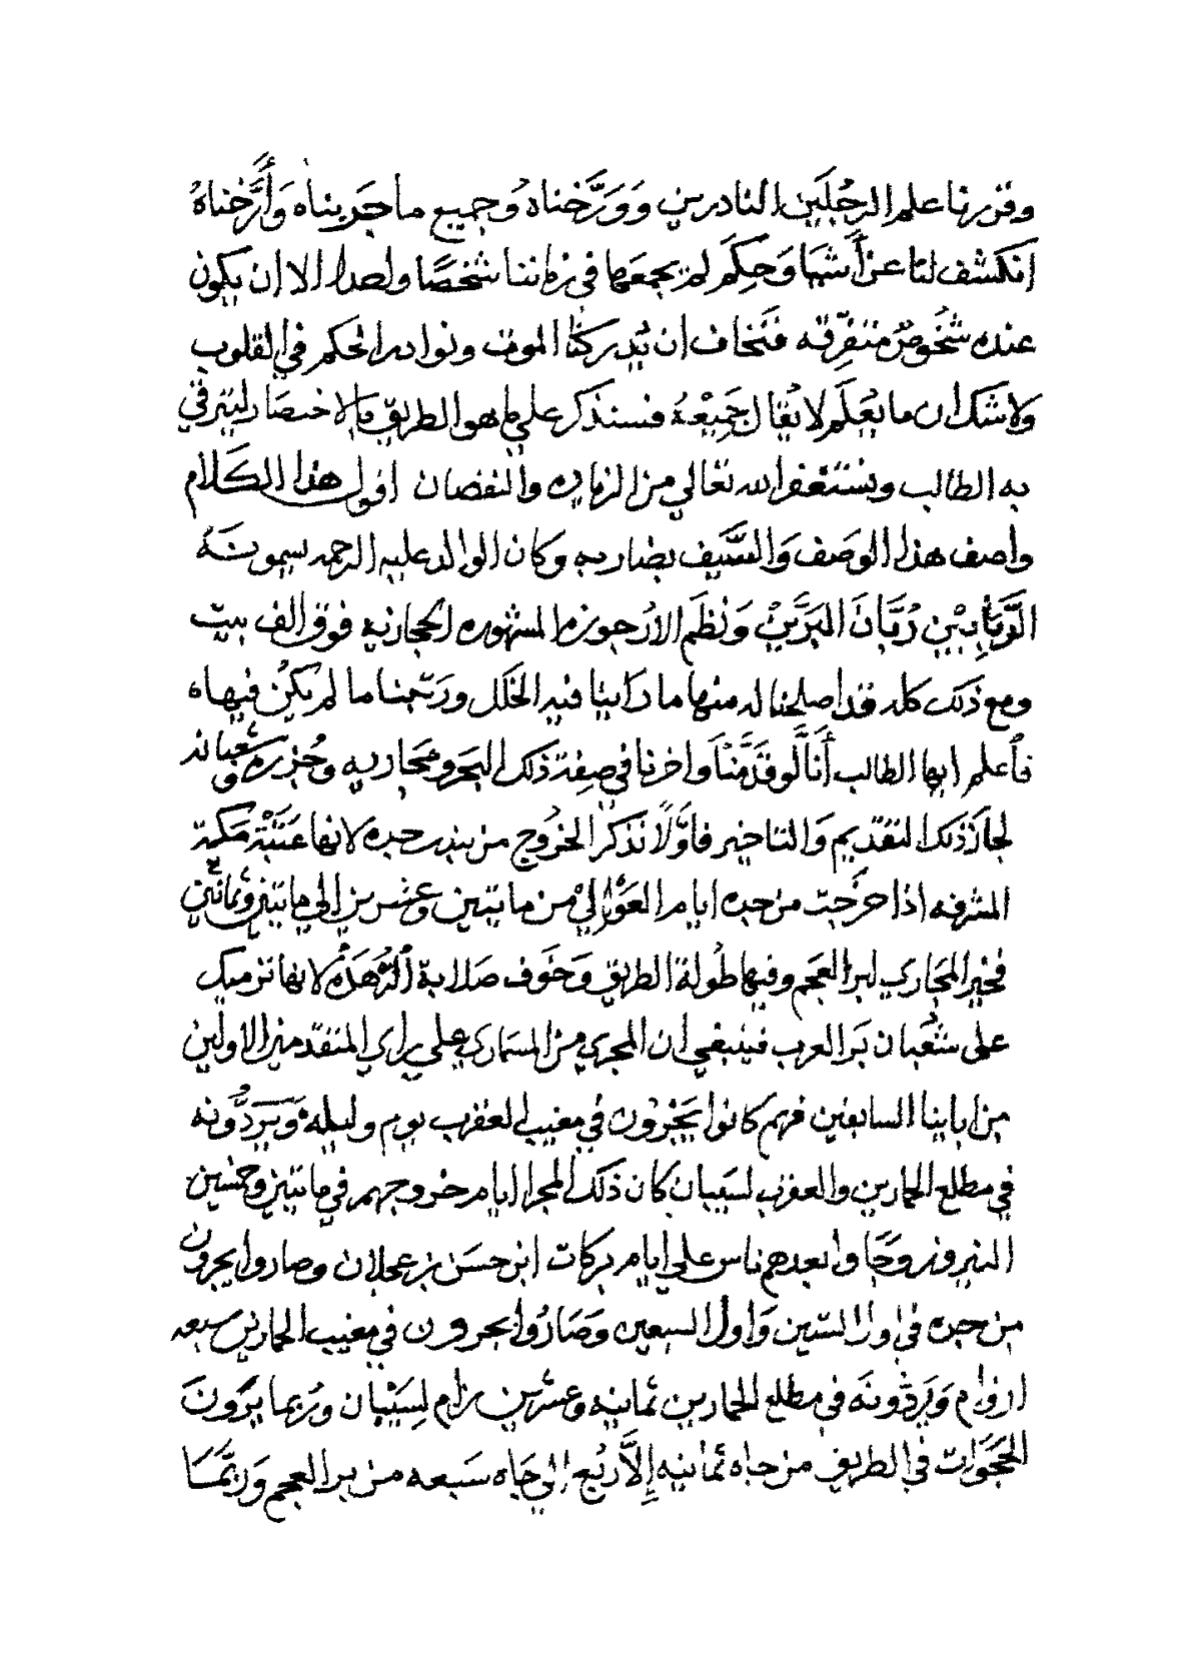 وقررنا علم الرجُلَين النادرين وَوَرَّخناه وُجميع ما جَرَّبناه وَأَرَّخناهُ
انكشف لنا عن أَشيَا وَحِكَم لم يجمعها في زماننا شخصًا واحدا الا ان يكون
عنده شخُوصٌ متفرّقه فنَخاف ان يُدركنا الموت ونوادر الحكم في القلوب
ولا شَك ان ما يُعلَم لا يُقال جَمِيْعهُ فسنذكر علي ما هو الطريق بالاختصار ليترقي
به الطالب ونستغفر الله تعالي من الزياده والنقصان اقول هذا الكَلام
واصف هذا الوَصَف وَالسَّيف بضاربه وكان الوالد عليه الرحمه يسمونَهُ
الرُّبَّانِيْن رُبَّانَ البَرَّيْنِ وَنظَم الارجوزه المشهوره الحجازيه فوق الف بيت
ومع ذلك كله قد اصلحنا له منها ما راينا فيه الخَلَل ورَتَّبنا ما لم يكُن فيها ه
فاعلم ايها الطالب أَنَّا لَو قَدَّمْنَا واخرنا في صِفة ذلك البَحر ومَجَاريه وجُزره وشعبانه
لجاز ذلك التقديم وَالتاخير فاوَّلاً نَذكر الخرُوج من بندر جده لانها عَتَبَة مَكة
المشرفه اذا خرَجت من جده ايام العَوَالي من مايتين وعشرين الي مايتين وثمانين
فخير المجَاري لبر العجَم وفيها طُولة الطريق وَخَوف صَلابة الزُّهَدْ لانها ترميك
على شعْبان بَر العرب فينبغي ان المجري من المسَماري علي راي المتقدمين الاولين
من اباينا السابقين فهم كانوا يَجْرُون في مغيب العقرب يوم وليله وَيَردُّونه
في مطلع الحمارين والعقرب لسَيبان كان ذلك المجرا ايام خروجهم في مايتين وخمسين
النيروز وَجَا وا بعدهم ناس علي ايام بركات ابن حسَن بن عجلان وصاروا يجرون
من جده في اول الستين وَاول السبعين وَصَارُوا يجرون في مغيب الحمارين سبعه
ازوام وَيَردّونَه في مطلع الحمارين ثمانيه وعشرين زام لِسَيْبان ورُبما يرَونَ
الحَجَوَات في الطريق من جاه ثمانيه إِلاَّ رُبُع الي جَاه سَبعه من بر العجم وَربَّمَا